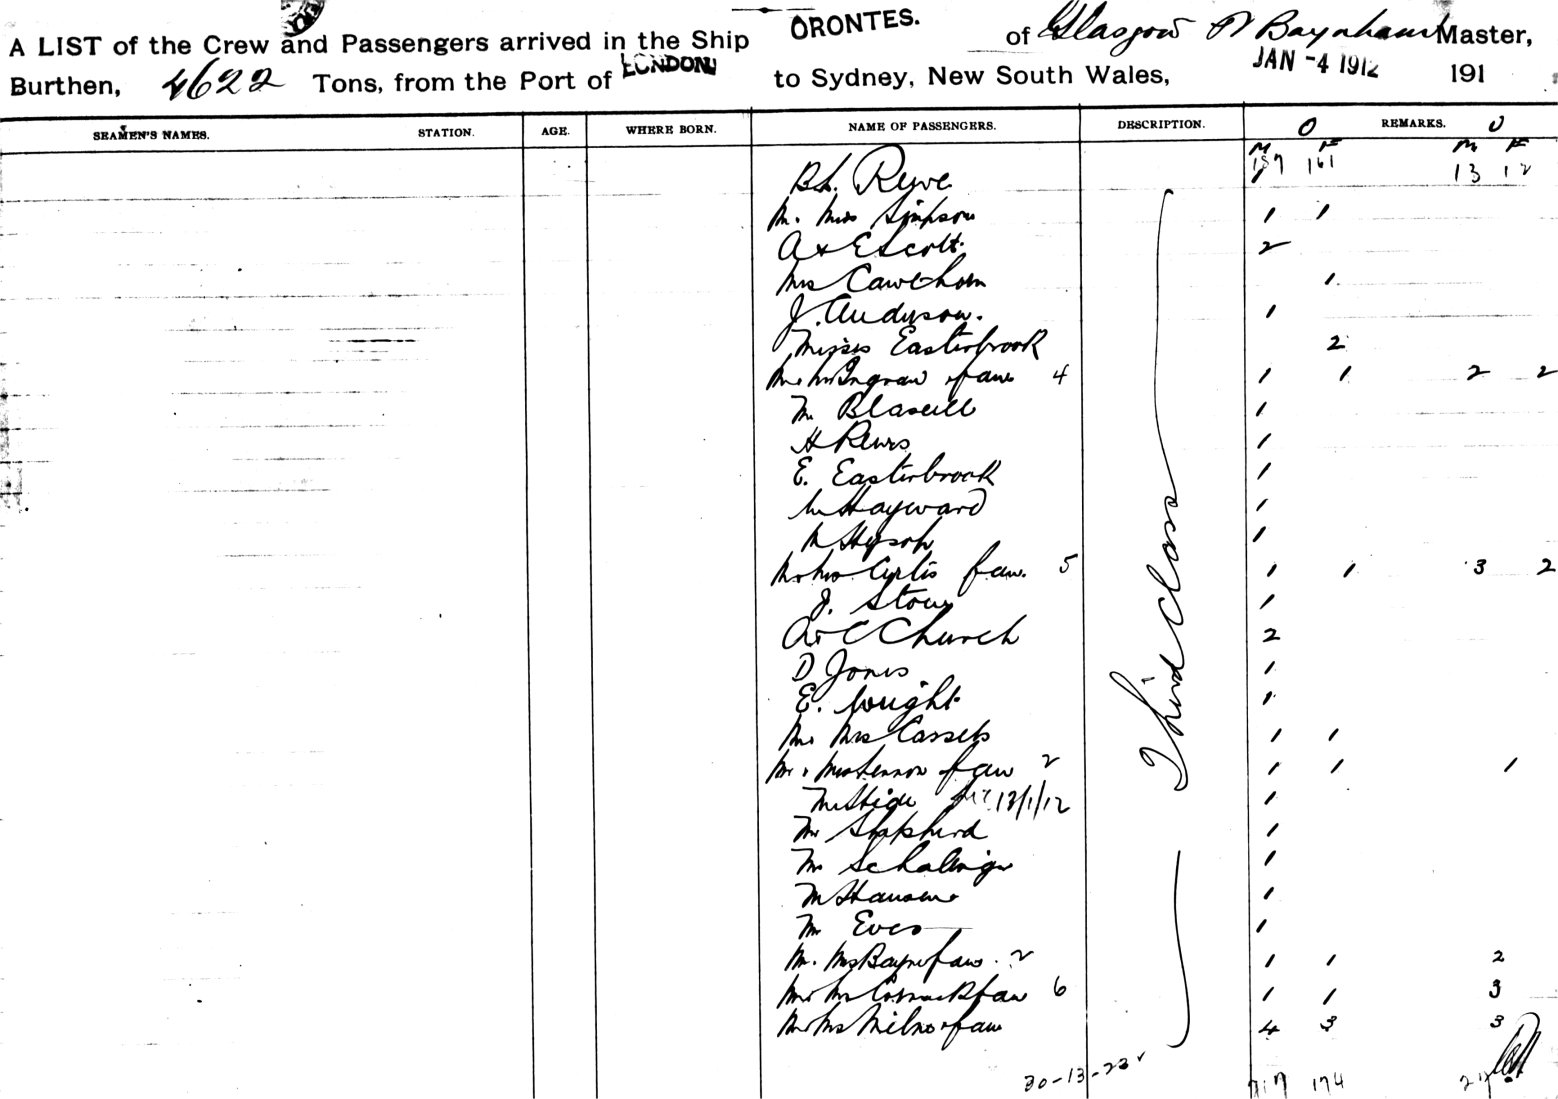 A LIST of the Crew and Passengers arrived in the Ship ORONTES. of Glasgow Baynham Master,
Burthen, 4622 Tons, from the Port of LONDON to Sydney, New South Wales, JAN -4 1912 191
SEAMEN'S NAMES. STATION. AGE. WHERE BORN. NAME OF PASSENGERS. DESCRIPTION. O REMARKS. U
M F M F
187 161 13 12
1
Mr. Mrs Simpson 1 1
A & E Scott. 2
Mrs Cawthorn 1
J. Anderson. 1
Misses Easterbrook 2
Mr. Mrs Ingram & fam 4 1 1 2 2
Mr 1
H 1
E. Easterbrook 1
Mr Hayward 1
1
Mr & Mrs Curtis fam. 5 1 1 3 2
J. Stone 1
A & C Church 2
D Jones 1
E. Wright. 1
Mr. Mrs Cassels 1 1
Mr. Mrs Lennon & fam 2 1 1 1
13/1/12 1
Mr Shepherd 1
Mr 1
Mr Hansen 1
Mr Eves 1
Mr. Mrs Bayne & fam. 2 1 1 2
Mr & Mrs fam 6 1 1 3
Mr Mrs Milne & fam 4 3 3
Third Class
30-13-23
217 174